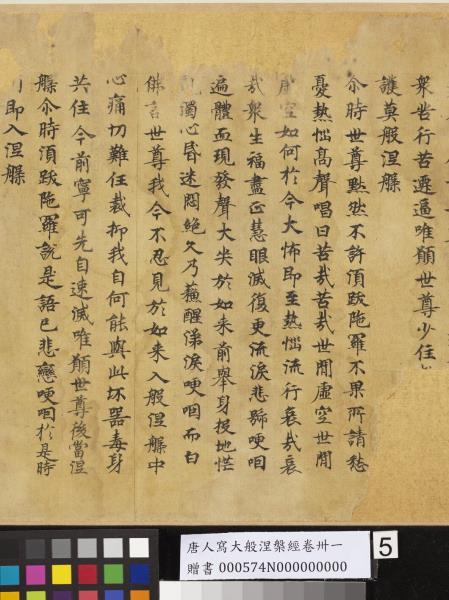 衆苦行苦遷逼唯願世尊少住
護莫般涅槃
尒時世尊黙然不許須跋陁羅不果所請愁
憂熱惱高聲唱曰苦哉苦哉世間虛空世間
虛空如何於今大怖即至熱惱流行哀哉哀
哉衆生福盡正慧眼滅復更流淚悲號哽咽
遍體血現發聲大哭於如来前舉身投地
濁心昏迷悶絕久乃蘇醒涕淚哽咽而白
佛言世尊我今不忍見於如来入般涅槃中
心痛切難任裁抑我自何能與此坏器毒身
共住今前寧可先自速滅唯願世尊後當涅
槃尒時須跋陁羅說是語已悲戀哽咽於是時
即入涅槃
唐人寫大般涅槃經卷卅一
贈書 000574N000000000
5